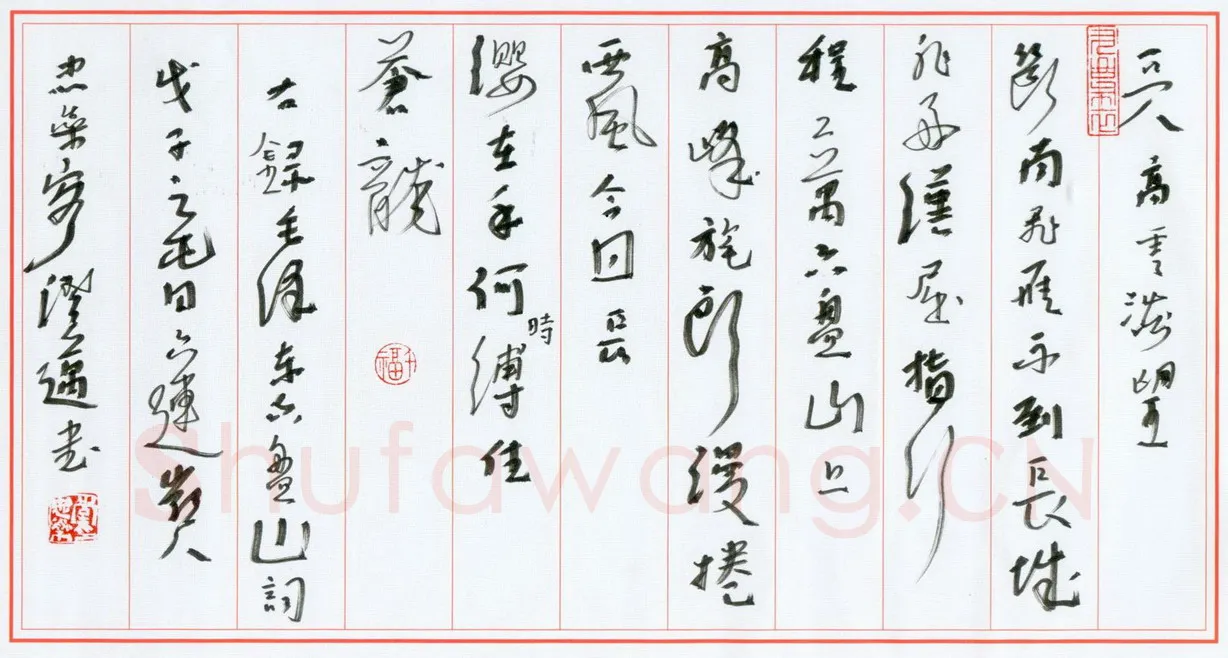 天高雲淡望
斷南飛雁不到長城
非好漢屈指行
程二萬六盘山上
高峰旄頭漫捲
西風今日長
纓在手何時縛住
蒼龍
右錄毛澤東六盘山詞
戊子之日六連
忠樂書
Shufawang.CN